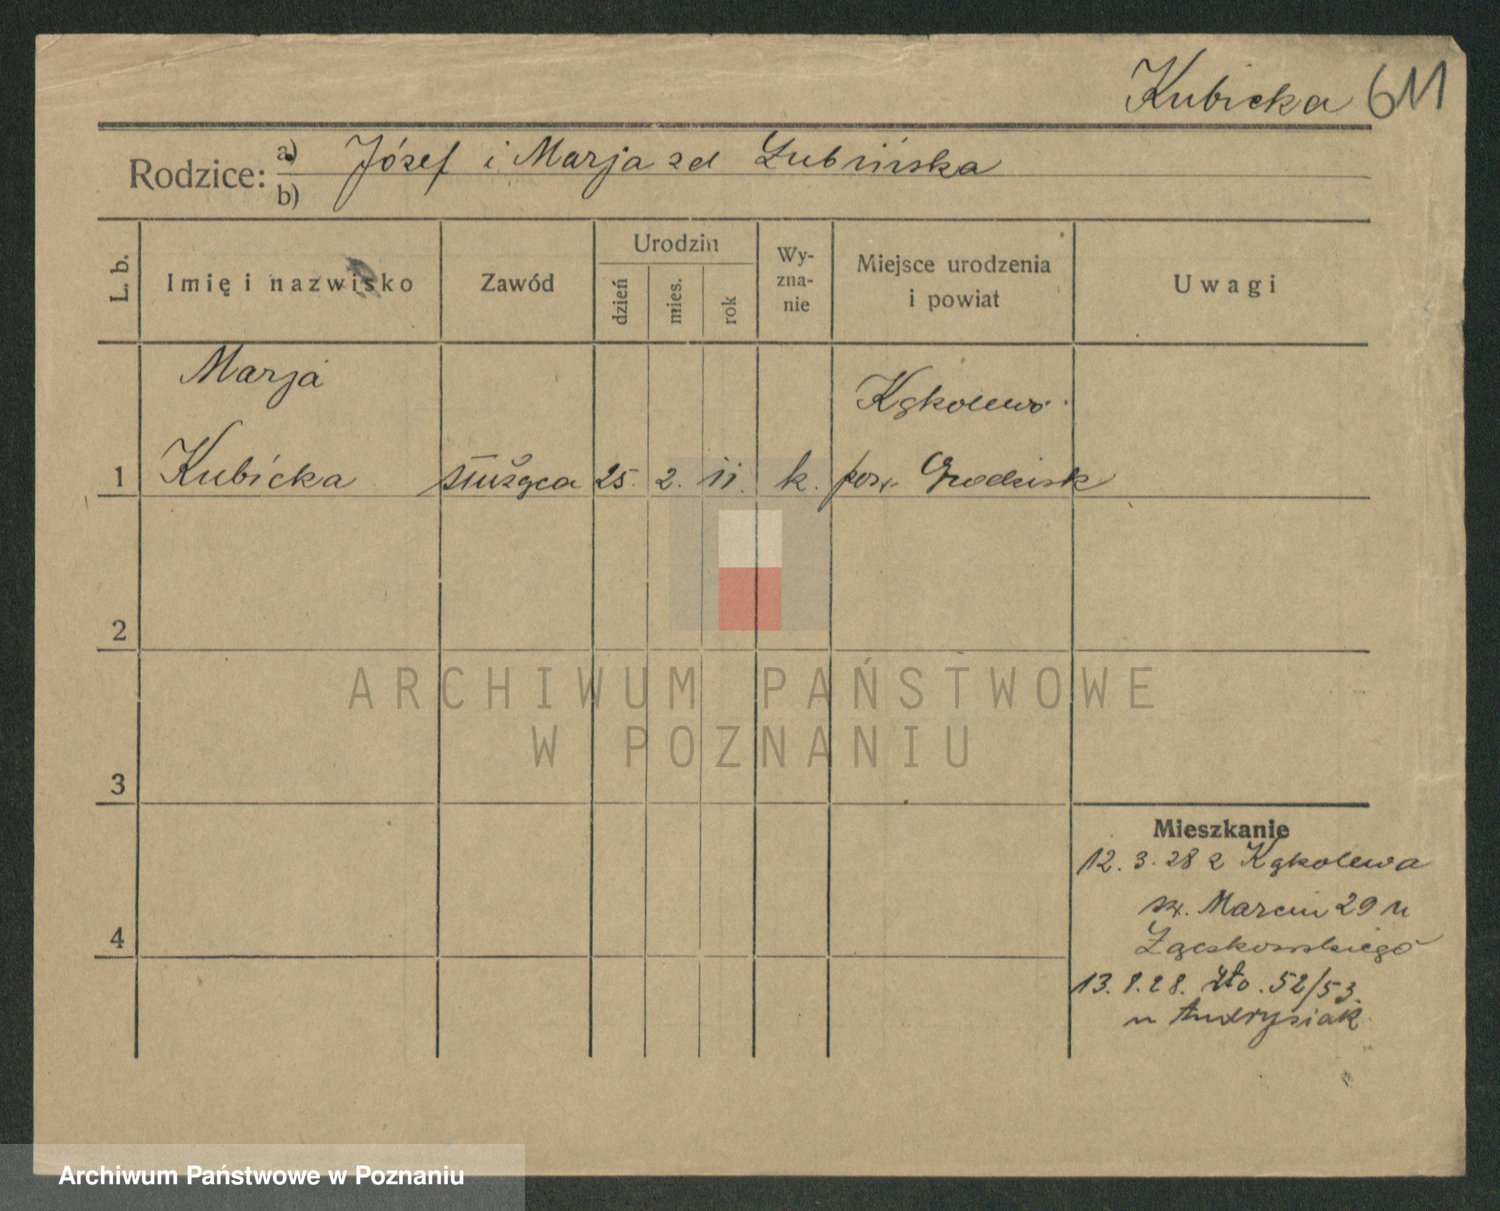 Kubicka 611
Rodzice: a) Józef i Marja zd Lubińska
b)
L. b.
Imię i nazwisko
Zawód
Urodzin
dzień
mies.
rok
Wy-
zna-
nie
Miejsce urodzenia
i powiat
Uwagi
Marja
Kąkolewo
1 Kubicka służąca 25. 2. 11. k. pow. Grodzisk
2
3
4
Mieszkanie
12. 3. 28 z Kąkolewa
św. Marcin 29 u
Łączkowskiego
13. 8. 28. 52/53.
u Andrysiak
ARCHIWUM PAŃSTWOWE
W POZNANIU
Archiwum Państwowe w Poznaniu